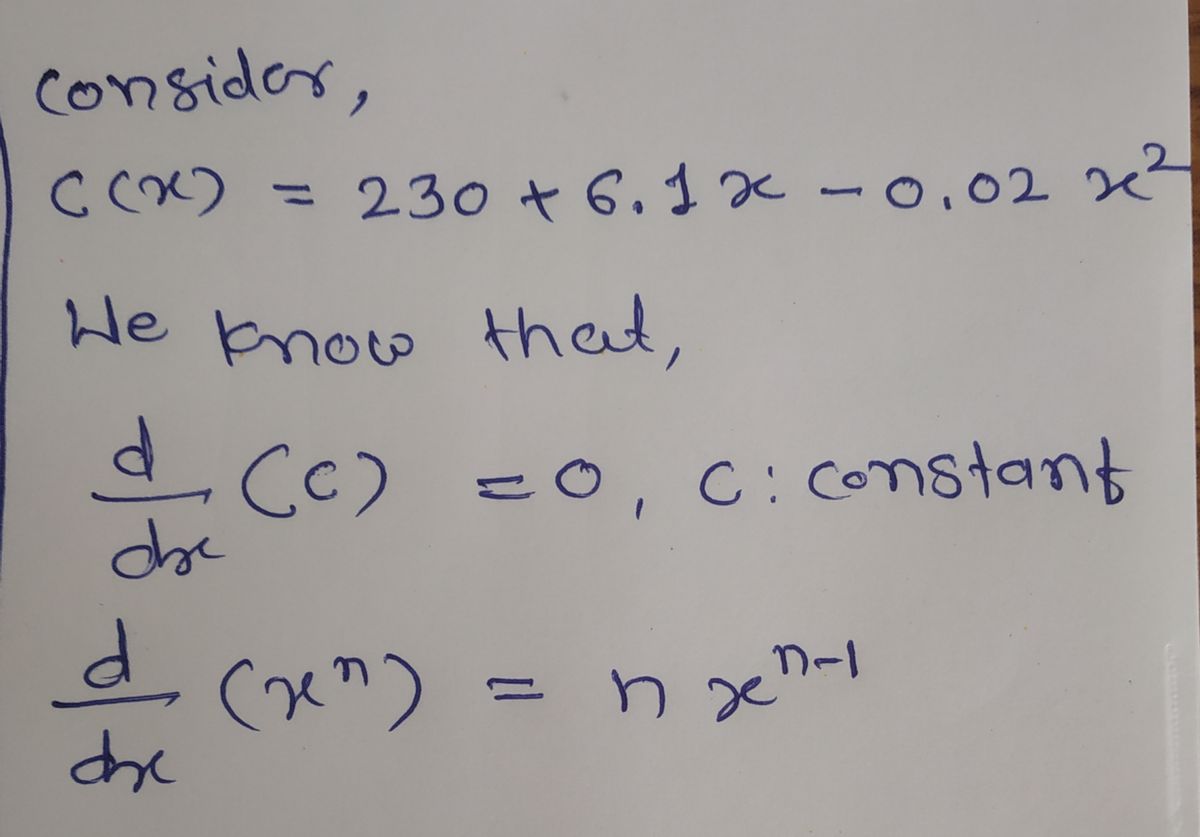 consider,
C(x) = 230 + 6.1x - 0.02 x²
We know that,
d/dx (c) = 0, c: constant
d/dx (xⁿ) = n xⁿ⁻¹